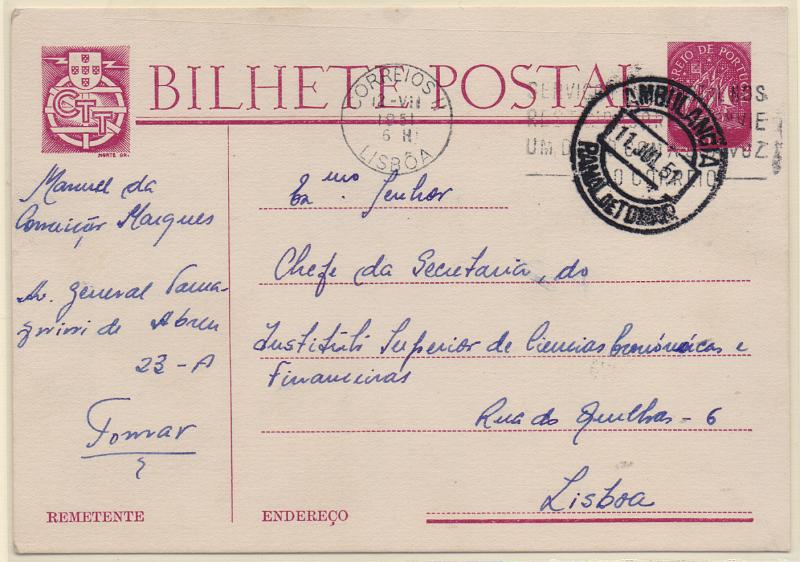 CTT
NORTE GR.
BILHETE POSTAL
CORREIO DE PORTUGAL
CORREIOS
12-VII
1951
6 H
LISBOA
AMBULANCIA
11 JUL 51
RAMAL DE TOMAR
UM
O CORREIO
Manuel da
Conceição Marques
Av. General Tama-
gnini de Abreu
23-A
Tomar
REMETENTE
Exmo Senhor
Chefe da Secretaria, do
Instituto Superior de Ciencias Económicas e
Financeiras
Rua do Quelhas - 6
Lisboa
ENDEREÇO